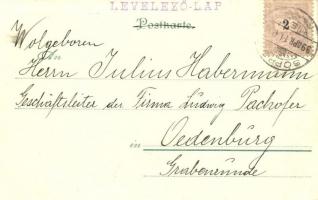 LEVELEZŐ-LAP
Postkarte.
Wolgeboren
An
Herrn Julius Habermann
Geschäftsleiter der Firma Ludwig Pachofer
in Oedenburg
Grabenrunde
2
SOPR